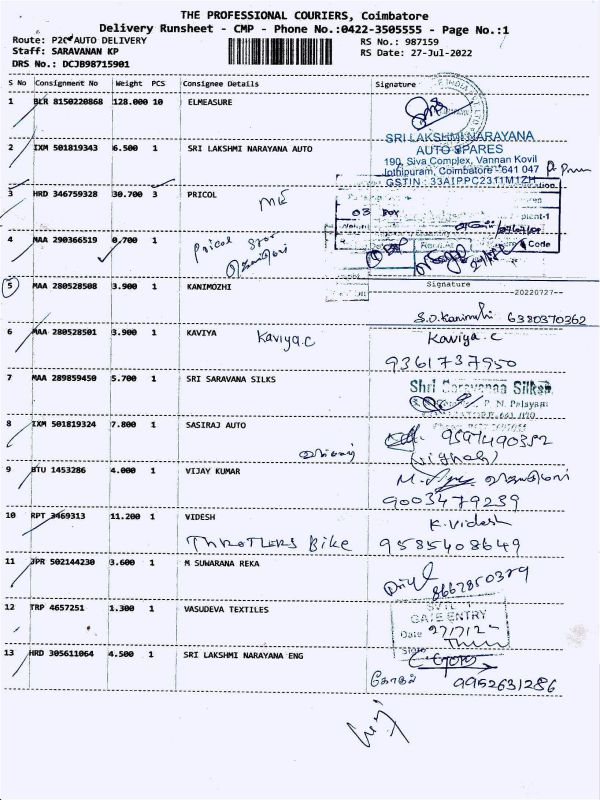 THE PROFESSIONAL COURIERS, Coimbatore
Delivery Runsheet - CMP - Phone No.:0422-3505555 - Page No.:1
Route: P2C AUTO DELIVERY
RS No.: 987159
Staff: SARAVANAN KP
RS Date: 27-Jul-2022
DRS No.: DCJB98715901
S No Consignment No Weight PCS Consignee Details Signature
1 BLR 8150220868 128.000 10 ELMEASURE
SRI LAKSHMI NARAYANA
AUTO SPARES
2 IXM 501819343 6.500 1 SRI LAKSHMI NARAYANA AUTO
190, Siva Complex, Vannan Kovil
Jothipuram, Coimbatore - 641 047
GSTIN : 33AIPPC2311M1ZH
3 HRD 346759328 30.700 3 PRICOL
03 Box
4 MAA 290366519 0.700 1
Pricol
Code
5 MAA 280528508 3.900 1 KANIMOZHI
Signature
20220727
S.D. Kanimozhi 6380370362
6 MAA 280528501 3.900 1 KAVIYA Kaviya.C Kaviya.C
9361737950
7 MAA 289859450 5.700 1 SRI SARAVANA SILKS
Shri Saravanaa Silks
P. N. Palayam
8 IXM 501819324 7.800 1 SASIRAJ AUTO
(Vignesh)
9 BTU 1453286 4.000 1 VIJAY KUMAR
9003479239
10 RPT 3469313 11.200 1 VIDESH K. Videsh
THROTLERS Bike 9585408649
11 JPR 502144230 3.600 1 M SUWARANA REKA
8667850379
12 TRP 4657251 1.300 1 VASUDEVA TEXTILES
GATE ENTRY
Date 27/7/22
13 HRD 305611064 4.500 1 SRI LAKSHMI NARAYANA ENG
9952631286